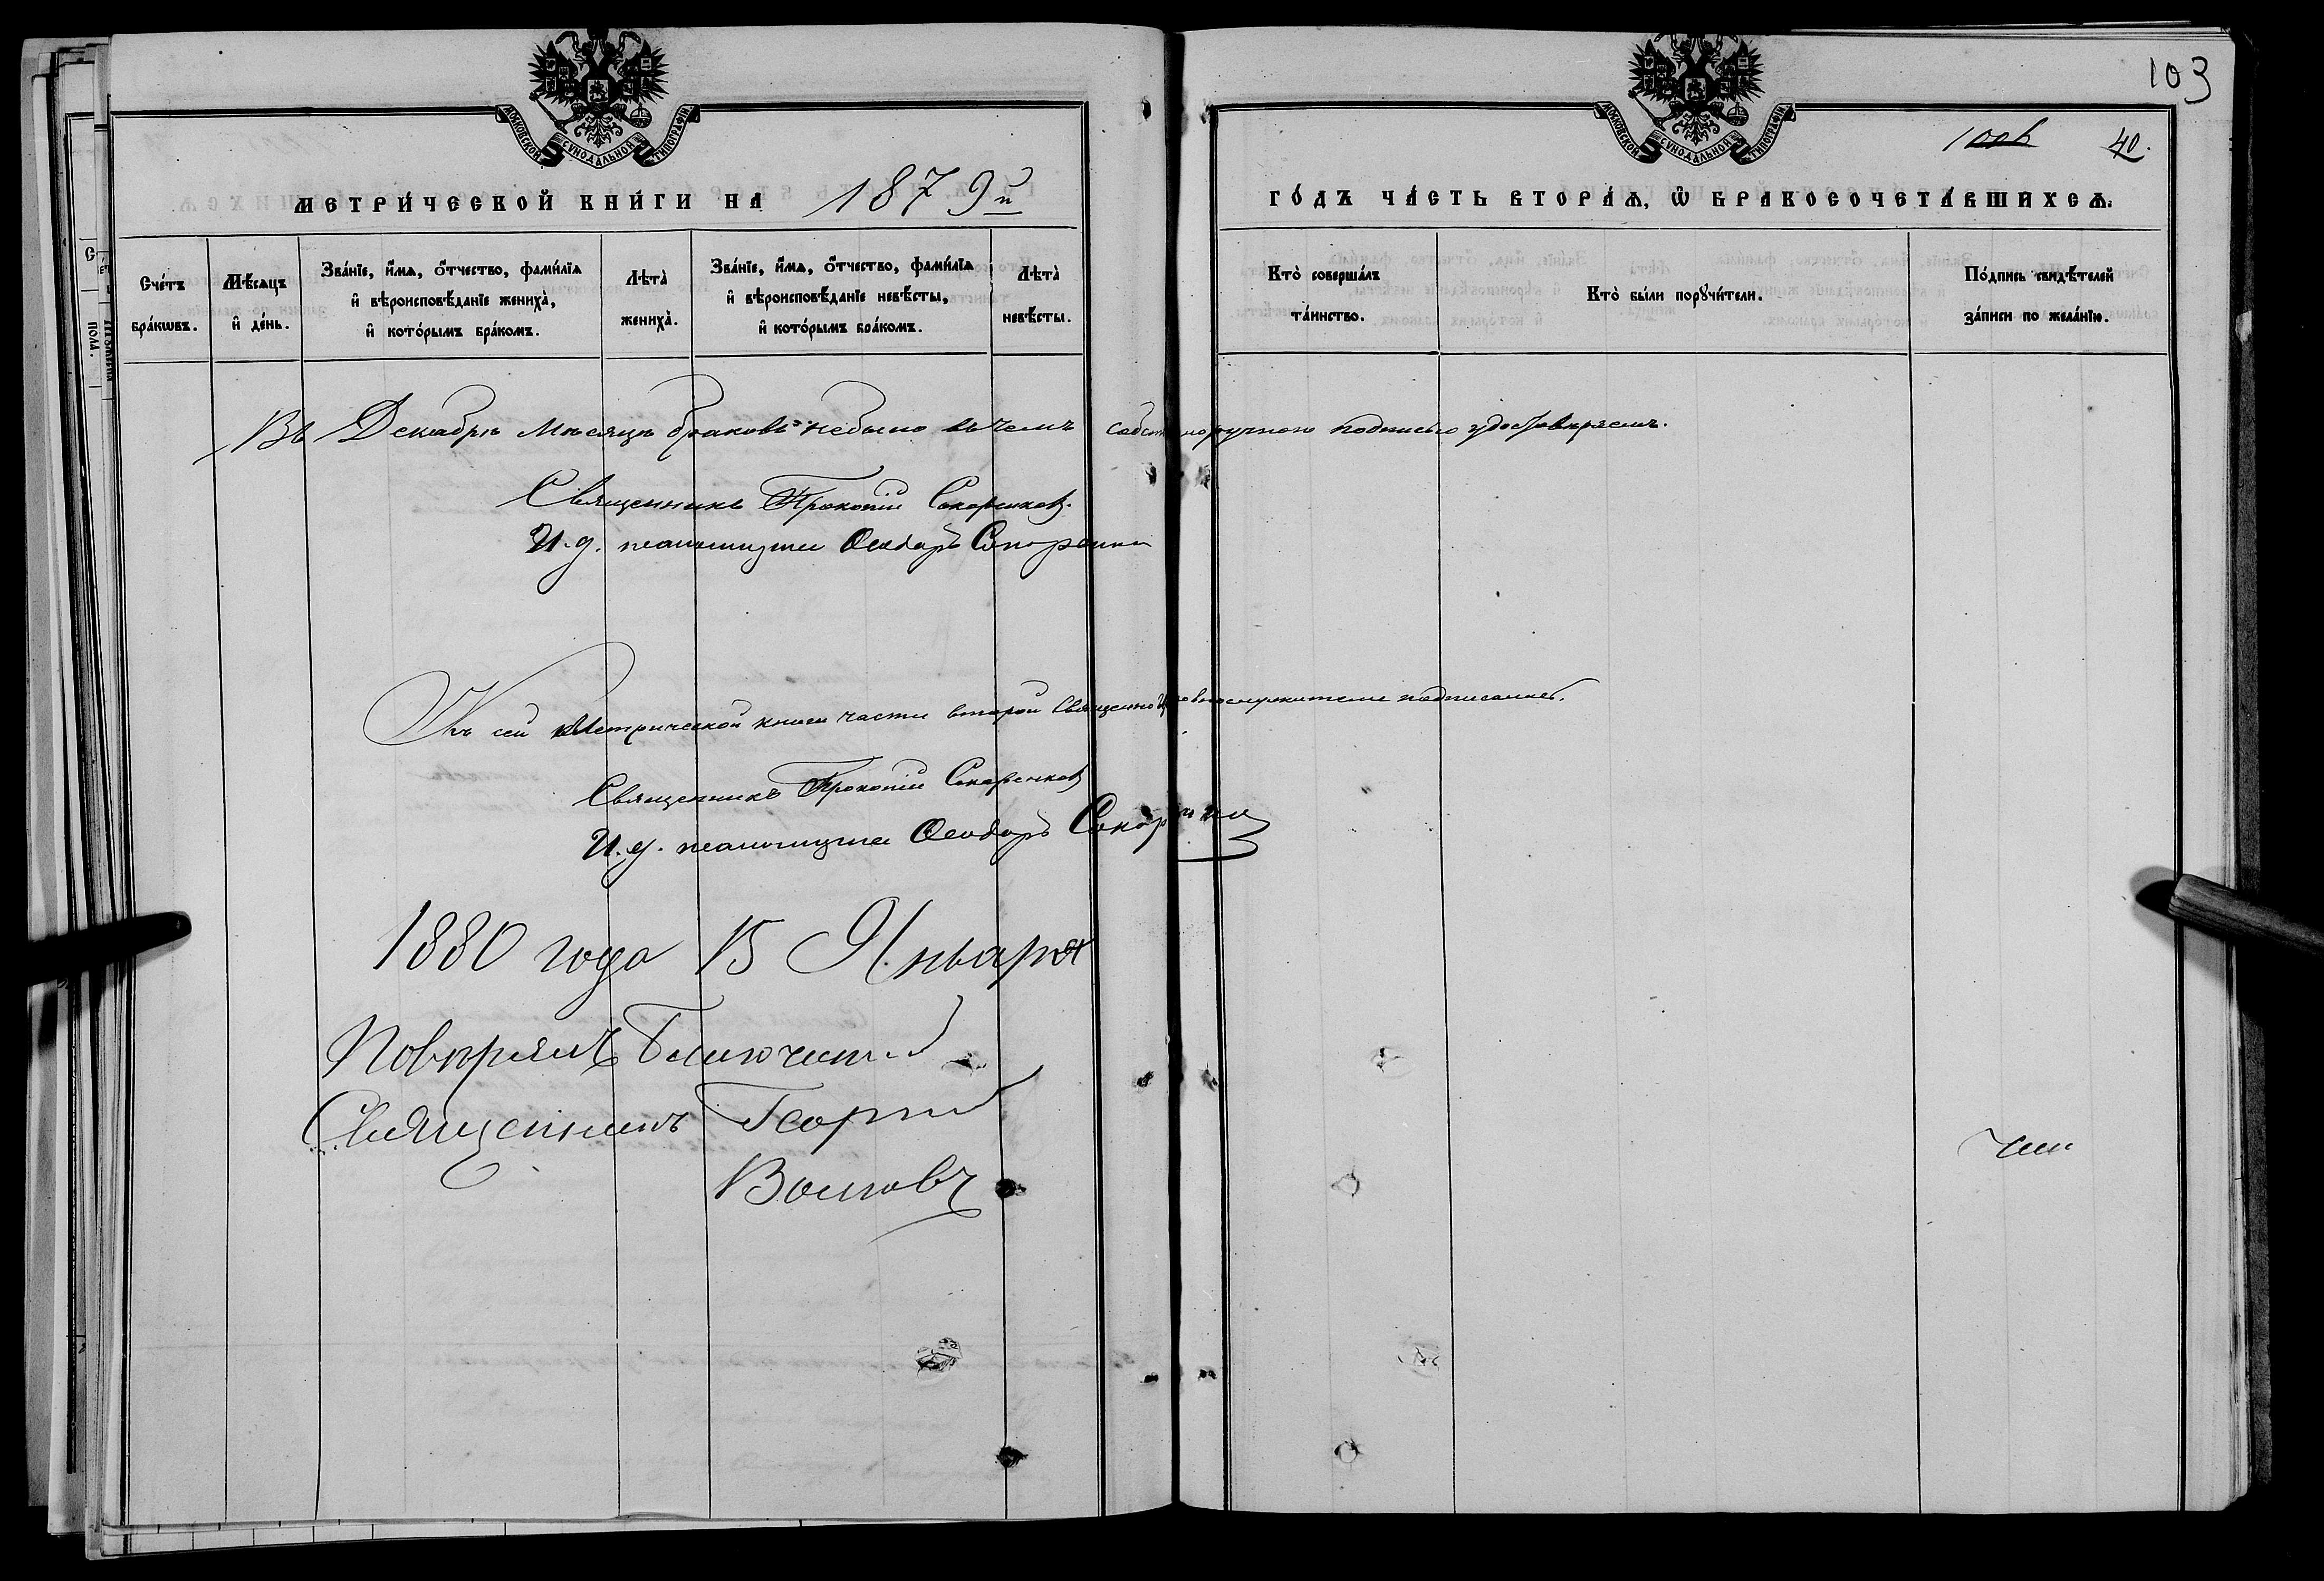 103
100в 40.
МОСКОВСКОЙ СѴНОДАЛЬНОЙ ТИПОГРАФІИ
МОСКОВСКОЙ СѴНОДАЛЬНОЙ ТИПОГРАФІИ
МЕТРИ́ЧЕСКОЙ КНИ́ГИ НА 1879й ГО́ДЪ ЧА́СТЬ ВТОРА́Ѧ, Ѽ БРАКОСОЧЕТА́ВШИХСѦ.
Сче́тъ бра́кѡвъ.
Мѣ́сѧцъ и҆ де́нь.
Зва́нїе, и҆́мѧ, ѻ҆́тчество, фами́лїѧ и҆ вѣроисповѣ́данїе жениха̀, и҆ кото́рымъ бра́комъ.
Лѣта̀ жениха̀.
Зва́нїе, и҆́мѧ, ѻ҆́тчество, фами́лїѧ и҆ вѣроисповѣ́данїе невѣ́сты, и҆ кото́рымъ бра́комъ.
Лѣта̀ невѣ́сты.
Кто̀ соверша́лъ та́инство.
Кто̀ бы́ли порꙋчи́тели.
По́дпись свидѣ́телей за́писи по жела́нїю.
Въ Декабрѣ мѣсяцѣ браковъ небыло въ чемъ собственоручною подписью удостовѣряемъ.
Священникъ Прокопій
И.д. псаломщика Ѳеодоръ
Къ сей Метрической книги части второй Священно церковнослужители подписались.
Священникъ Прокопій
И.д. псаломщика Ѳеодоръ
1880 года 15 Января
Повѣрялъ Благочинный
Священникъ Георгій
Волковъ